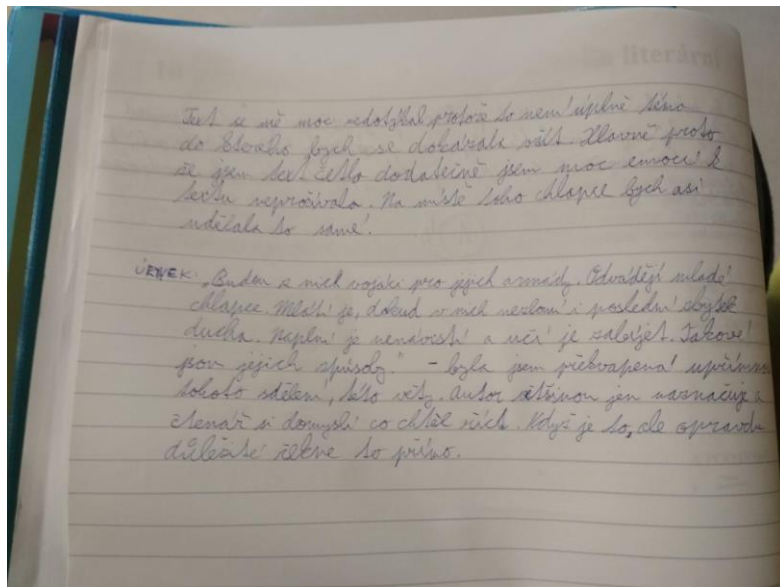 Text se mě moc nedotýkal protože to není úplně téma
do kterého bych se dokázala vžít. Hlavně proto
že jsem text četla dodatečně jsem moc emocí k
textu neprožívala. Na místě toho chlapce bych asi
udělala to samé.
ÚRYVEK: „Budou z nich vojáci pro jejich armády. Odvádějí mladé
chlapce. Mlátí je, dokud v nich nezlomí i poslední zbytek
ducha. Naplní je nenávistí a učí je zabíjet. Takové
jsou jejich způsoby." - byla jsem překvapená
tohoto sdělení, této věty. Autor většinou jen naznačuje a
čtenář si domyslí co chtěl říct. Když je to, ale opravdu
důležité řekne to přímo.